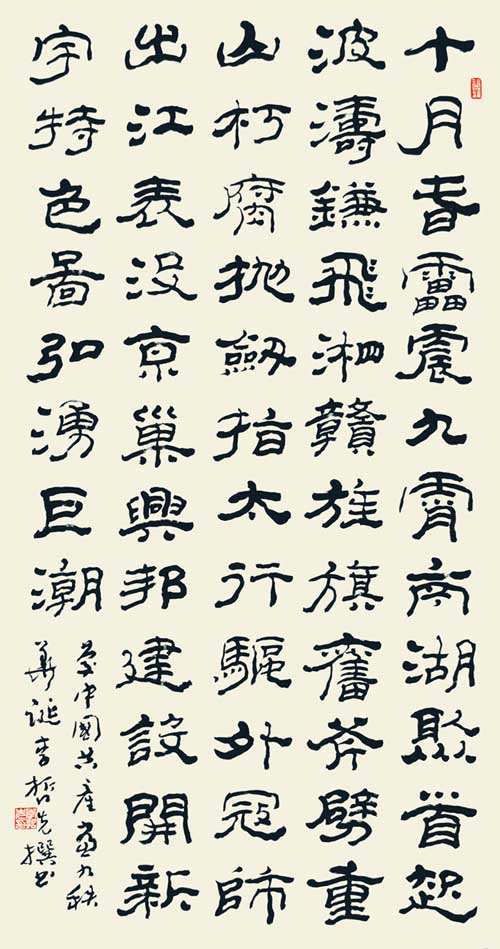 十月春雷震九霄南湖聚首起
波濤鐮飛湘贛旌旗奮斧劈重
山朽腐拋劍指太行驅外寇師
出江表沒京巢興邦建設開新
宇特色圖弘湧巨潮
慶中國共產党九秩
華誕李哲先撰书